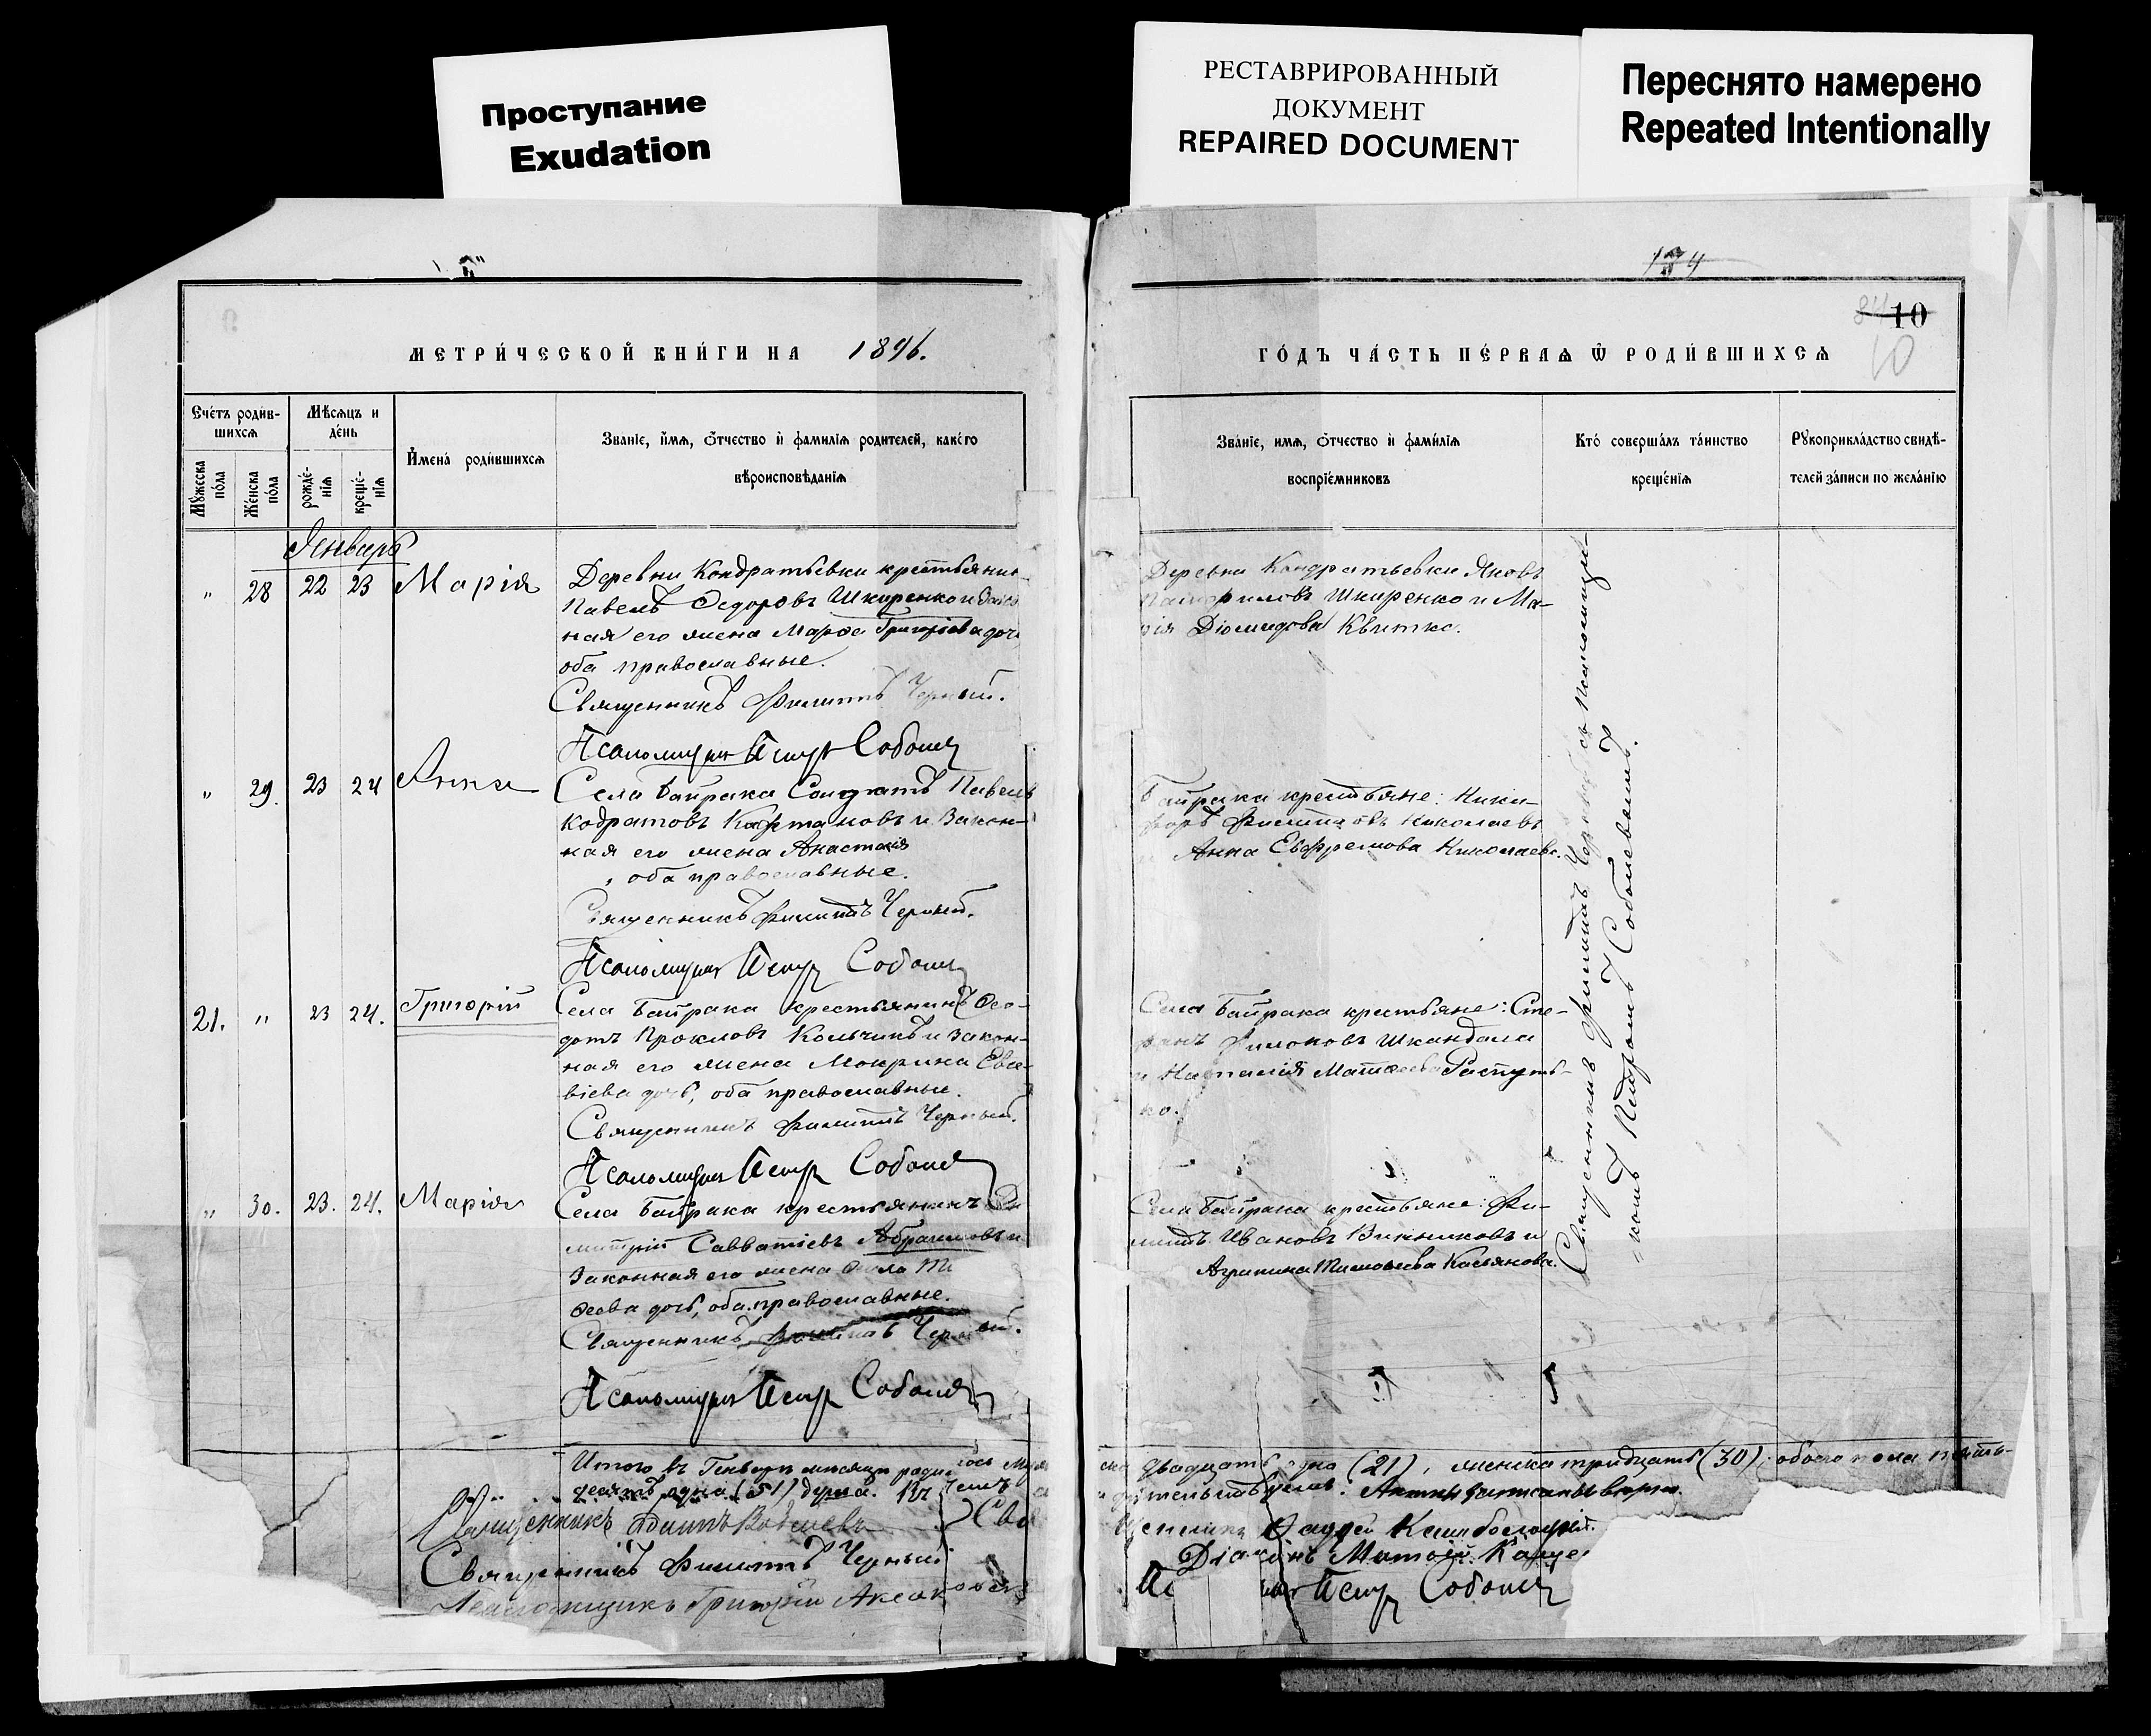 Проступание
Exudation
РЕСТАВРИРОВАННЫЙ
ДОКУМЕНТ
REPAIRED DOCUMENT
Переснято намерено
Repeated Intentionally
10
10
МЕТРИ́ЧЕСКОЙ КНИ́ГИ НА 1896.
ГО́ДЪ ЧА́СТЬ ПЕ́РВАѦ Ѿ РОДИ́ВШИХСѦ
Сче́тъ роди́в-
шихсѧ
Мꙋжеска по́ла
Же́нска по́ла
Мѣсѧцъ и
де́нь
рожде́-
нїѧ
креще́-
нїѧ
И҆мена̀ роди́вшихсѧ
Зва́нїе, и҆́мѧ, ѻ҆́тчество и҆ фамилїѧ родителей, како́го
вѣроисповѣ́данїѧ
Зва́нїе, имѧ, ѻ҆́тчество и҆ фами́лїѧ
воспрїе́мниковъ
Кто̀ соверша́лъ та́инство
креще́нїѧ
Рꙋкоприкла́дство свидѣ́-
телей за́писи по жела́нїю
Январь
" 28 22 23 Марія
Деревни Кондратьевки крестьянин
Павелъ Ѳедоровъ Шкиренко и Зако
ная его жена Марѳа Григоріева доч
оба православные.
Священникъ Филиппъ Черный.
Псаломщикъ Петръ Соболе
Деревни Кондратьевки Яковъ
Памфиловъ Шкиренко и Ма-
рія Діомидова Квитко.
" 29. 23 24 Анна
Села Байрака Солдатъ Павелъ
Кодратовъ Кафтановъ и Закон-
ная его жена Анастасія
, оба православные.
Священникъ Филиппъ Черный.
Псаломщикъ Петръ Соболе
Байрака крестьяне: Ники-
форъ Филипповъ Николаевъ
и Анна Евфремова Николаева.
21. " 23 24. Григорій
Села Байрака крестьянинъ Ѳео-
дотъ Прокловъ Кольчикъ и закон-
ная его жена Мокрина Евсе-
віева дочь, оба православные.
Священникъ Филиппъ Черный.
Псаломщикъ Петръ Соболе
Села Байрака крестьяне: Сте-
фанъ Филоновъ Шкандала
и Наталія Матѳеева Распуть-
ко.
" 30. 23. 24. Марія
Села Байрака крестьянинъ Ди
митрій Савватіевъ Абрамовъ и
Законная его жена Ти
ѳеева дочь, оба православные.
Священникъ Филиппъ Черный.
Псаломщикъ Петръ Соболе
Села Байрака крестьяне: Фи-
липпъ Ивановъ Винниковъ и
Агрипина Тимоѳеева Касьянова.
Священникъ Филиппъ Черный съ Псаломщи-
комъ Петромъ Соболевымъ.
Итого въ Генварѣ мѣсяцѣ родилось Муже
ска двадцать одно (21), женска тридцать (30), обоего пола пять-
десятъ одна (51) душа. Въ чемъ и
свидѣтельствуемъ. Акты записаны вѣрно.
Священникъ
Священникъ Филиппъ Черный
Псаломщикъ Григорій Аксак
Священникъ Андрей
Діаконъ Матѳій
Петръ Соболе